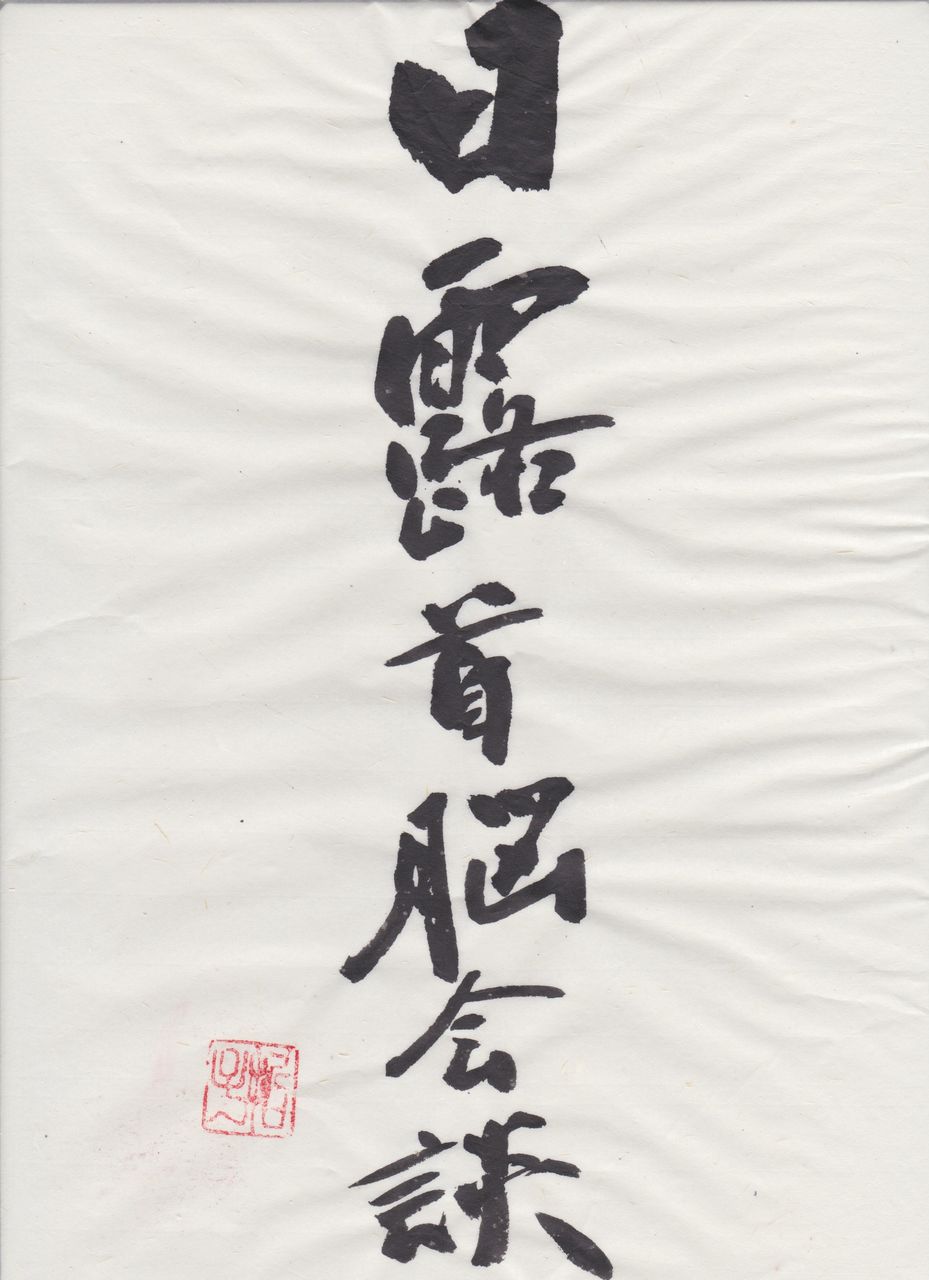 日露首脳会談